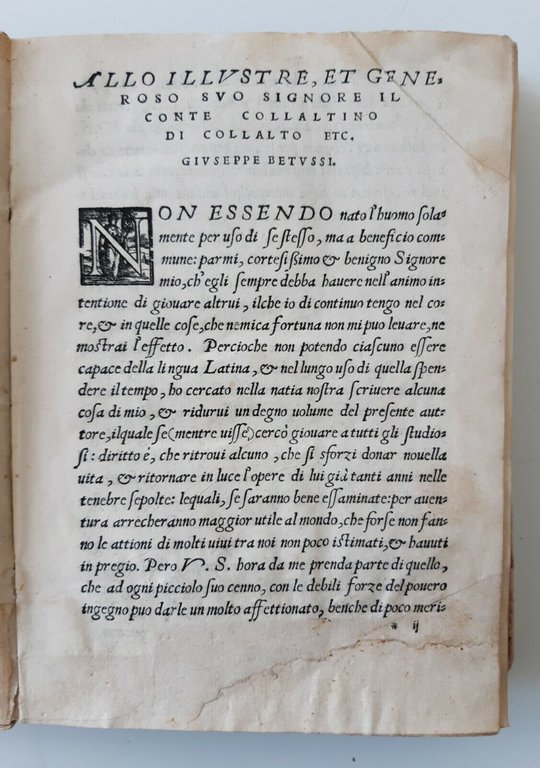 ALLO ILLVSTRE, ET GENE-
ROSO SVO SIGNORE IL
CONTE COLLALTINO
DI COLLALTO ETC.
GIVSEPPE BETVSSI.
NON ESSENDO nato l'huomo sola-
mente per uso di se stesso, ma a beneficio com-
mune: parmi, cortesißimo & benigno Signore
mio, ch'egli sempre debba hauere nell'animo in-
tentione di giouare altrui, ilche io di continuo tengo nel co-
re, & in quelle cose, che nemica fortuna non mi puo leuare, ne
mostrai l'effetto. Percioche non potendo ciascuno essere
capace della lingua Latina, & nel lungo uso di quella spen-
dere il tempo, ho cercato nella natia nostra scriuere alcuna
cosa di mio, & ridurui un degno uolume del presente aut-
tore, ilquale se (mentre uisse) cercò giouare a tutti gli studio-
si: diritto é, che ritroui alcuno, che si sforzi donar nouella
uita, & ritornare in luce l'opere di lui già tanti anni nelle
tenebre sepolte: lequali, se saranno bene essaminate: per auen-
tura arrecheranno maggior utile al mondo, che forse non fan-
no le attioni di molti uiui tra noi non poco istimati, & hauuti
in pregio. Pero V. S. hora da me prenda parte di quello,
che ad ogni picciolo suo cenno, con le debili forze del pouero
ingegno puo darle un molto affettionato, benche di poco meri-
* ij